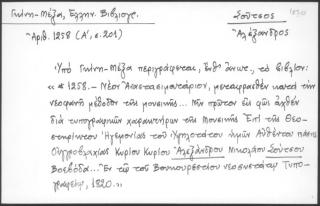 Γκίνη-Μέξα, Ελλην. Βιβλιογρ.
Σούτσος
1820
Ἀριθ. 1258 (Α', σ. 201)
Ἀλέξανδρος
Ὑπὸ Γκίνη-Μέξα περιγράφεται, ἔνθ' ἄνωτ., τὸ βιβλίον:
«*1258.- Νέον Ἀναστασιματάριον, μεταφρασθὲν κατὰ τὴν
νεοφανῆ μέθοδον τῆς μουσικῆς... Νῦν πρῶτον εἰς φῶς ἀχθὲν
διὰ τυπογραφικῶν χαρακτήρων τῆς Μουσικῆς Ἐπὶ τῆς Θεο-
στηρίκτου Ἡγεμονίας τοῦ Ὑψηλοτάτου ἡμῶν Αὐθέντου πάσης
Οὐγγροβλαχίας Κυρίου Κυρίου Ἀλεξάνδρου Νικολάου Σούτσου
Βοεβόδα... Ἐν τῷ τοῦ Βουκουρεστίου νεοσυστάτῳ Τυπο-
γραφείῳ, 1820.»